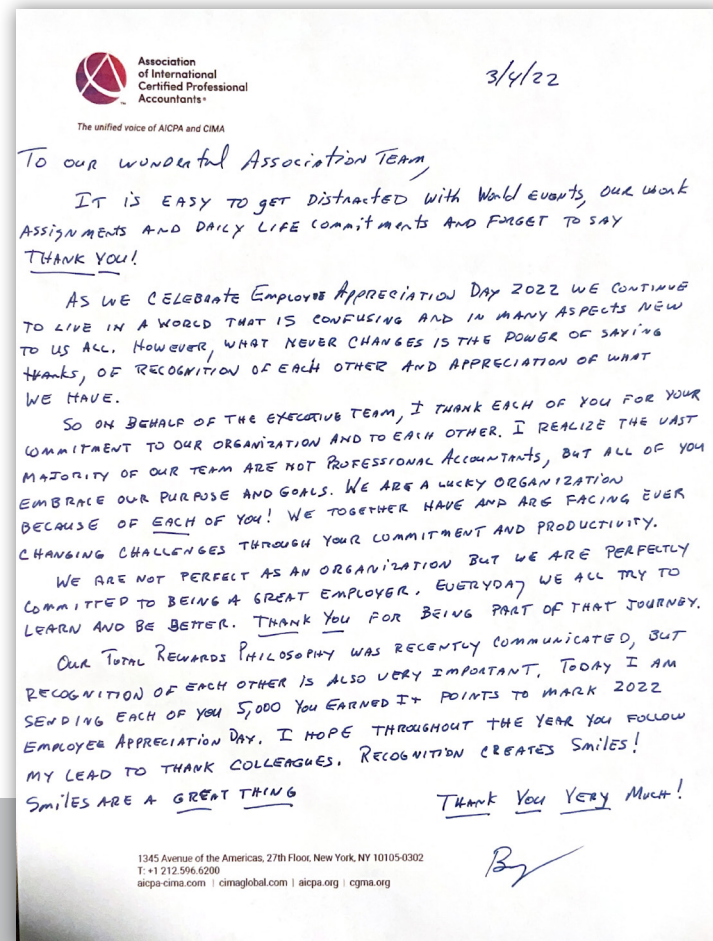 Association
of International
Certified Professional
Accountants®
™
The unified voice of AICPA and CIMA
3/4/22
To our wonderful Association Team,
It is easy to get distracted with world events, our work
assignments and daily life commitments and forget to say
Thank You!
As we celebrate Employee Appreciation Day 2022 we continue
to live in a world that is confusing and in many aspects new
to us all. However, what never changes is the power of saying
thanks, of recognition of each other and appreciation of what
we have.
So on behalf of the executive team, I thank each of you for your
commitment to our organization and to each other. I realize the vast
majority of our team are not professional accountants, but all of you
embrace our purpose and goals. We are a lucky organization
because of each of you! We together have and are facing ever
changing challenges through your commitment and productivity.
We are not perfect as an organization but we are perfectly
committed to being a great employer. Everyday we all try to
learn and be better. Thank You for being part of that journey.
Our Total Rewards Philosophy was recently communicated, but
recognition of each other is also very important. Today I am
sending each of you 5,000 You Earned It points to mark 2022
Employee Appreciation Day. I hope throughout the year you follow
my lead to thank colleagues. Recognition creates smiles!
Smiles are a great thing
Thank You Very Much!
1345 Avenue of the Americas, 27th Floor, New York, NY 10105-0302
T: +1 212.596.6200
aicpa-cima.com | cimaglobal.com | aicpa.org | cgma.org